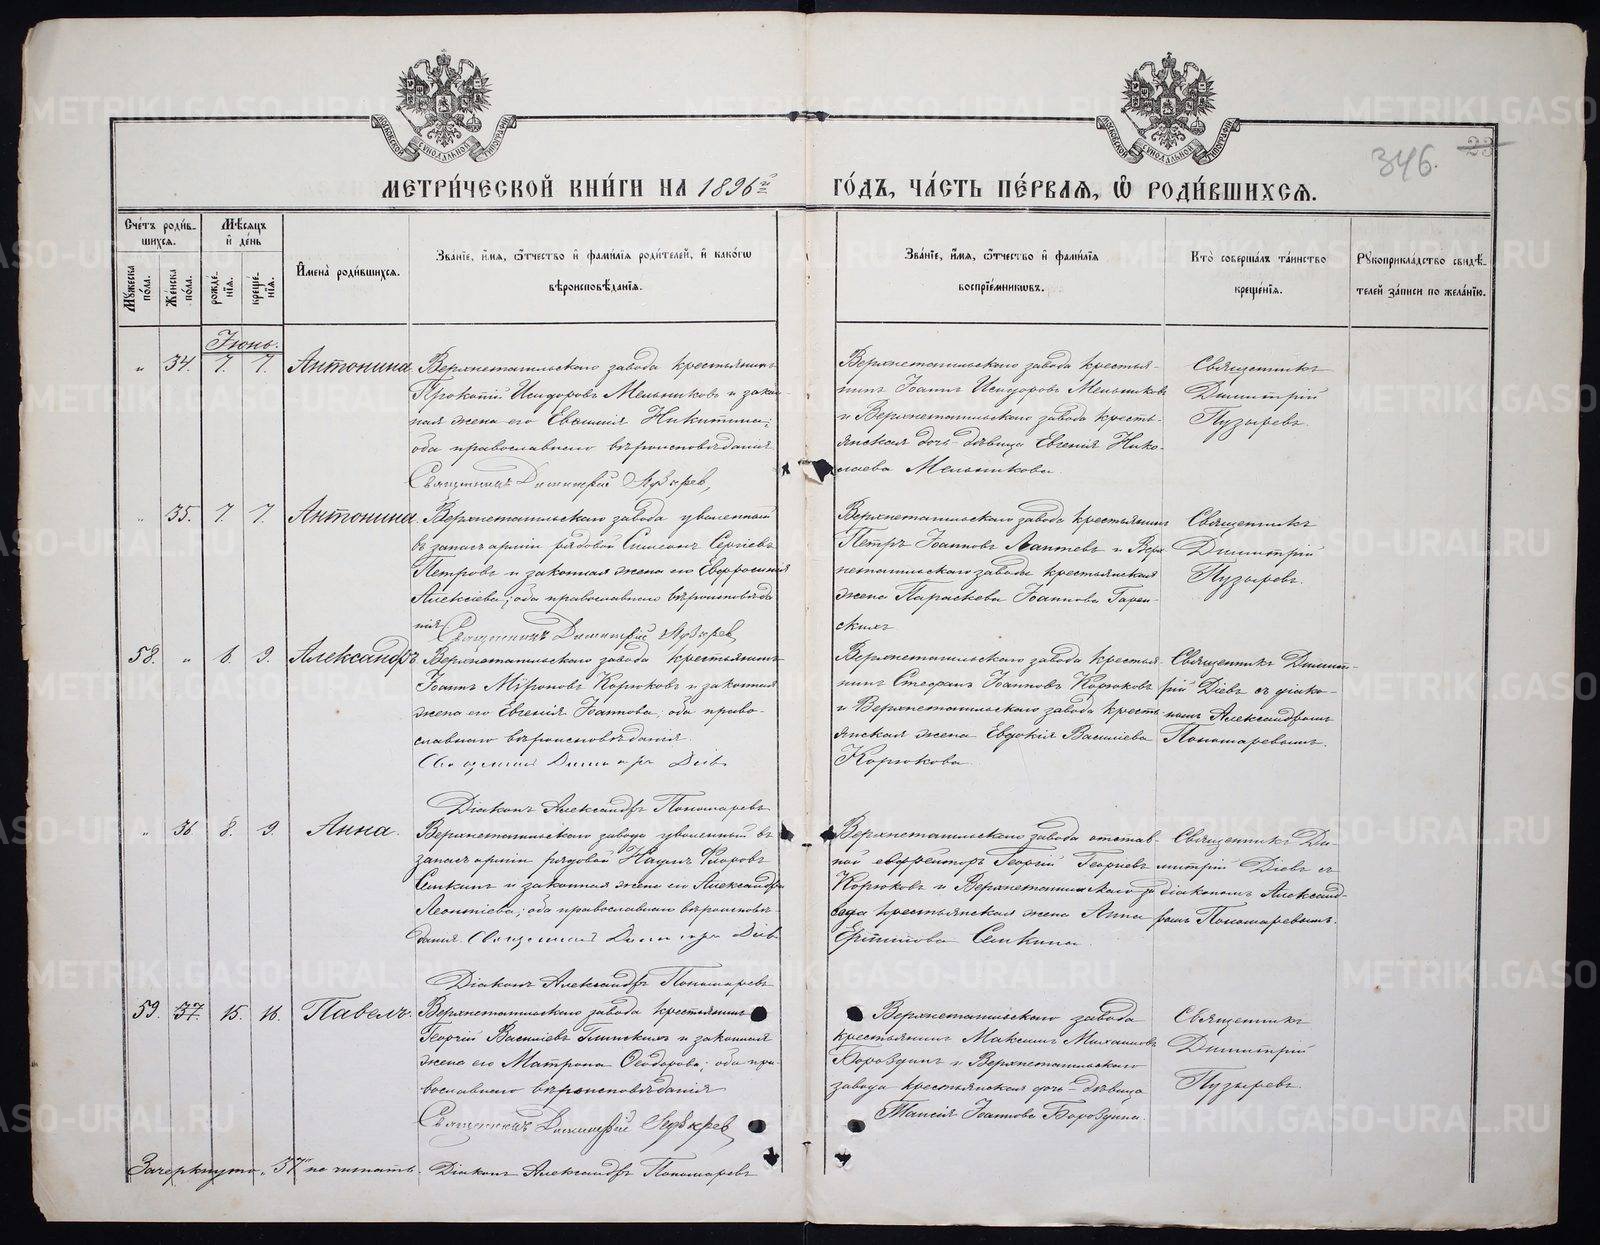 346. 23
МЕТРИ́ЧЕСКОЙ КНИ́ГИ НА 1896й ГО́ДЪ, ЧА́СТЬ ПЕ́РВАЯ, Ѡ РОДИ́ВШИХСЯ.
Сче́тъ роди́вшихся.
Мѣ́сяцъ и҆ де́нь
Му́жеска по́ла.
Же́нска по́ла.
рожде́нїѧ.
креще́нїѧ.
И҆мена̀ роди́вшихся.
Зва́нїе, и҆́мя, ѻ҆́тчество и҆ фами́лїя роди́телей, и҆ како́гѡ
вѣроисповѣ́данїя.
Зва́нїе, и҆́мя, ѻ҆́тчество и҆ фами́лїя
воспрїе́мниковъ.
Кто̀ соверша́лъ та́инство
креще́нїя.
Рꙋкоприкла́дство свидѣ́-
телей за́писи по жела́нїю.
Іюнь.
„ 34. 7. 7. Антонина
Верхнетагильскаго завода крестьянинъ
Прокопій Исидоровъ Мельниковъ и закон-
ная жена его Евѳимія Никитина;
оба православнаго вѣроисповѣданія
Священникъ Димитрій Пузырев
Верхнетагильскаго завода крестья-
нинъ Іоаннъ Исидоровъ Мельниковъ
и Верхнетагильскаго завода кресть-
янская дочь-дѣвица Евгенія Нико-
лаева Мельникова.
Священникъ
Димитрій
Пузыревъ.
„ 35. 7. 7. Антонина
Верхнетагильскаго завода уволенный
въ запасъ арміи рядовой Симеонъ Сергіевъ
Петровъ и законная жена его Евфросинія
Алексіева; оба православнаго вѣроисповѣда-
нія. Священникъ Димитрій Пузырев
Верхнетагильскаго завода крестьянинъ
Петръ Іоанновъ Лаптевъ и Верх-
нетагильскаго завода крестьянская
жена Параскева Іоаннова
скихъ
Священникъ
Димитрій
Пузыревъ.
58. „ 6. 9. Александръ
Верхнетагильскаго завода крестьянинъ
Іоаннъ Мѵроновъ Корюковъ и законная
жена его Евгенія Іоаннова; оба право-
славнаго вѣроисповѣданія.
Священник Димитрий Диев
Діаконъ Александръ Пономаревъ
Верхнетагильскаго завода крестья-
нинъ Стефанъ Іоанновъ Корюковъ
и Верхнетагильскаго завода кресть-
янская жена Евдокія Василіева
Корюкова.
Священникъ Димит-
рій Діевъ съ діако-
номъ Александромъ
Пономаревымъ.
„ 36. 8. 9. Анна.
Верхнетагильскаго завода уволенный въ
запасъ арміи рядовой Наумъ Фроловъ
Семкинъ и законная жена его Александра
Леонтіева; оба православнаго вѣроисповѣ-
данія. Священник Димитрий Диев
Діаконъ Александръ Пономаревъ
Верхнетагильскаго завода отстав-
ной ефрейторъ Георгій Георгіевъ
Корюковъ и Верхнетагильскаго за-
вода крестьянская жена Анна
Семкина.
Священникъ Ди-
митрій Діевъ съ
діакономъ Александ-
ромъ Пономаревымъ.
59. 37. 15. 16. Павелъ.
Верхнетагильскаго завода крестьянинъ
Георгій Василіевъ Глинскихъ и законная
жена его Матрона Ѳеодорова; оба пра-
вославнаго вѣроисповѣданія
Священникъ Димитрій Пузырев
Верхнетагильскаго завода
крестьянинъ Максимъ Михаиловъ
Бороздинъ и Верхнетагильскаго
завода крестьянская дочь-дѣвица
Таисія Іоаннова Бороздина.
Священникъ
Димитрій
Пузыревъ.
Зачеркнуто „37" не читать. Діаконъ Александръ Пономаревъ